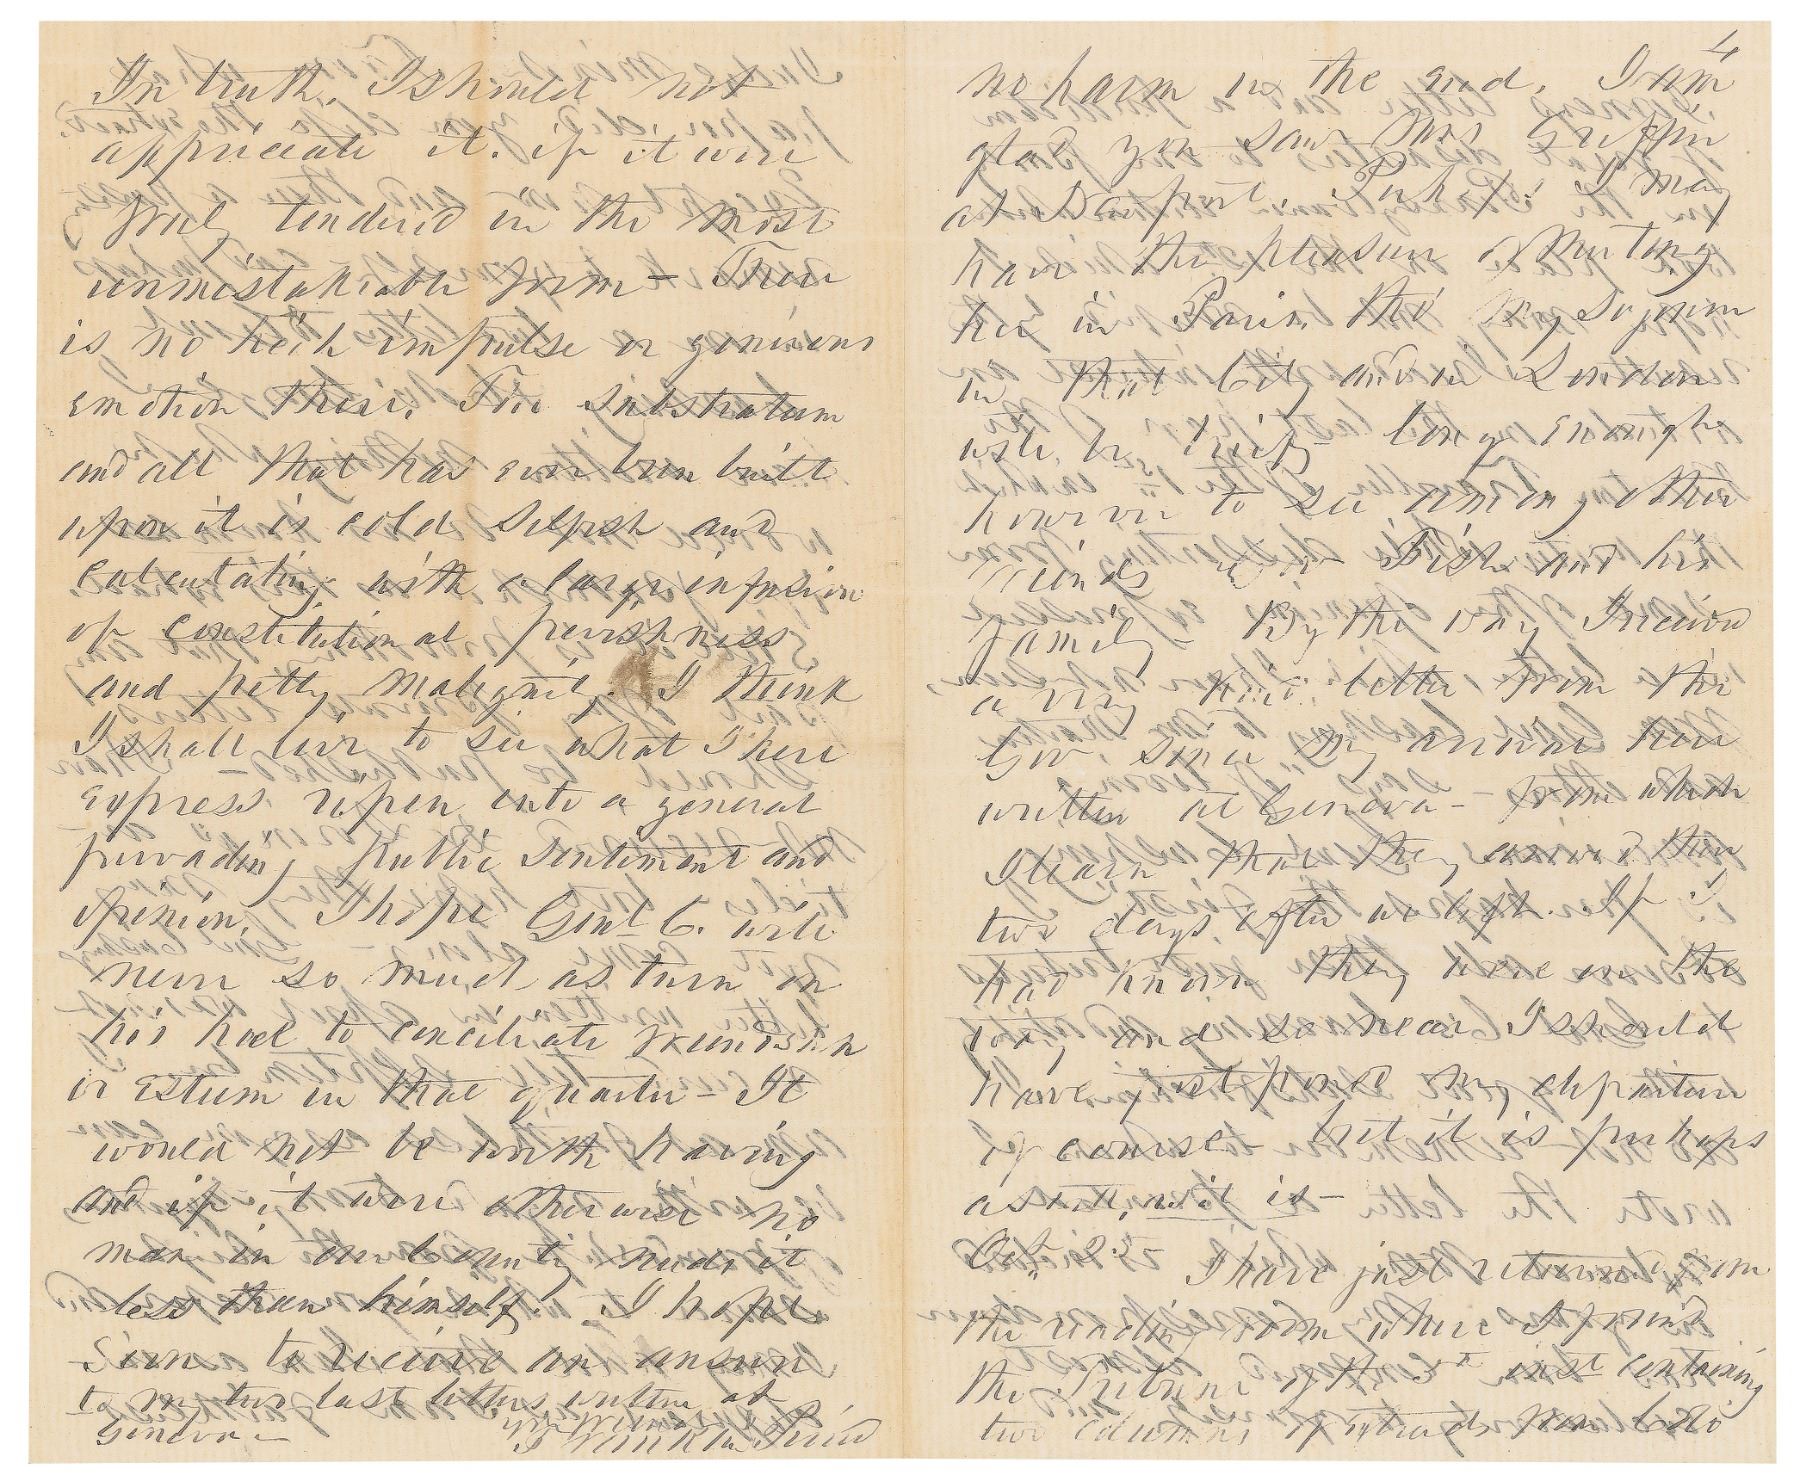 In truth, I should not
appreciate it. if it were
truly tendered in the most
unmistakeable form – There
is no rich impulse or generous
emotion there. The substratum
and all that has ever been built
upon it is cold selfish and
calculating with a large infusion
of constitutional peevishness
and petty malignity. I think
I shall live to see what I here
express ripen into a general
pervading public sentiment and
opinion. I hope Genl C. will
never so much as turn on
his heel to conciliate friendship
or esteem in that quarter – It
would not be worth having
and if it were otherwise no
man in our County needs it
less than himself. I hope
soon to receive an answer
to my two last letters written at
Geneva –
4
no harm in the end. I am
glad you saw Mrs Griffin
at Newport. Perhaps I may
have the pleasure of meeting
her in Paris, tho' my sojourn
in that City and in London
will be brief – long enough
however to see among other
friends Gov Fish and his
family – By the way I received
a very kind letter from the
Gov since my arrival here
written at Geneva – from which
I learn that they arrived there
two days after we left. If I
had known they were on the
way and so near I should
have postponed my departure
of course – but it is perhaps
as well, as it is –
Oct. 25 I have just returned from
the reading room where I found
the Tribune of the 5th inst containing
two columns of extracts from